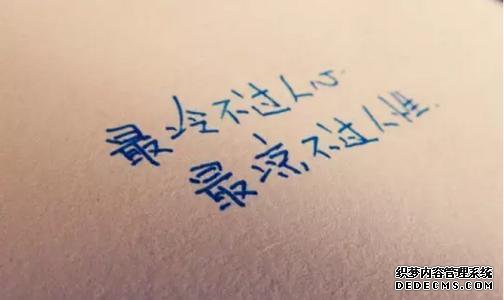 最冷不过人心
最凉不过人性
织梦内容管理系统
DEDECMS.COM